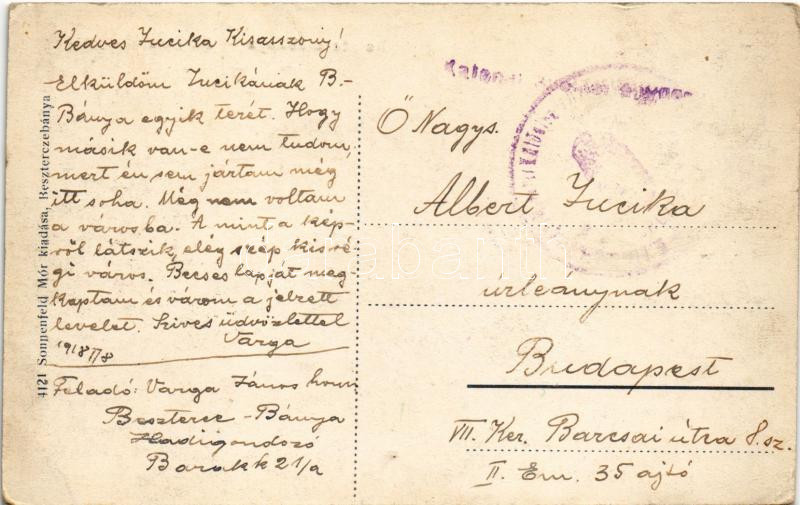 Kedves Iucika Kisasszony!
Elküldöm Iucikának B.-
Bánya egyik terét. Hogy
másik van-e nem tudom,
mert én sem jártam még
itt soha. Még nem voltam
a városba. A mint a kép-
ről látszik, elég szép kis ré-
gi város. Becses lapját meg-
kaptam és várom a jelzett
levelet. Szives üdvözlettel
Varga
1918 II/8
Feladó: Varga János honv.
Besztercc-Bánya
Hadigondozó
Barakk 21/a
4121 Sonnenfeld Mór kiadása, Beszterczebánya
Ő Nagys.
Albert Iucika
úrleánynak
Budapest
VII. Ker. Barcsai útra 8. sz.
II. Em. 35 ajtó
darabanth